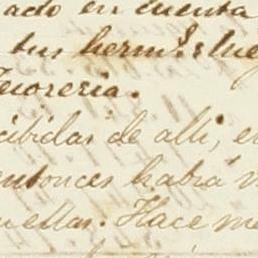 ado en cuenta
tus herm.s &
Tesoreria.
cibidas de alli, e
entonces habrá
ellas. Hace me